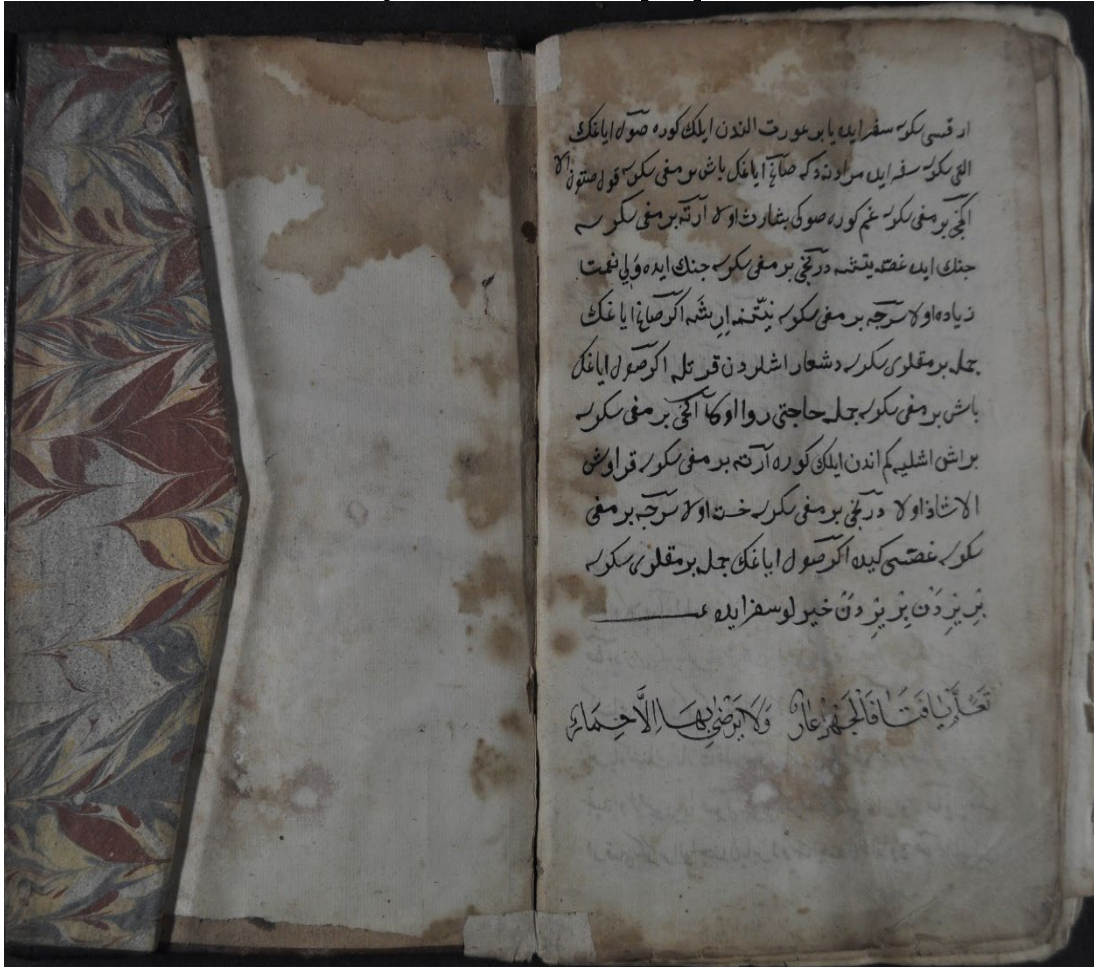 ارقسى سكرسه سفر ايده يا بر عورت الندن ايلك كوره صول اياغك
التى سكرسه سفر ايده مرادنه دكه صاغ اياغك باش برمغى سكرسه قول صتون الا
اكنجى برمغى سكرسه غم كوره صوكى بشارت اولا آرته برمغى سكرسه
جنك ايده غصه يتشه دردنجى برمغى سكرسه جنك ايده ولى نعمت
زياده اولا سرجه برمغى سكرسه اريشه اكر صاغ اياغك
جمله برمقلرى سكرسه دشعار اشلردن قورتله اكر صول اياغك
باش برمغى سكرسه جمله حاجتى روا اوكا اكنجى برمغى سكرسه
بر اش اشليه كم اندن ايلك كوره آرته برمغى سكرسه قراوش
الا شاذ اولا دردنجى برمغى سكرسه خسته اولا سرجه برمغى
سكرسه غصه‌سى كيده اكر صول اياغك جمله برمقلرى سكرسه
بريزدن بريزدن خيرلو سفر ايده
تعلّم يا فتا فالجهل عار ولا يرضى بها الّا حمار